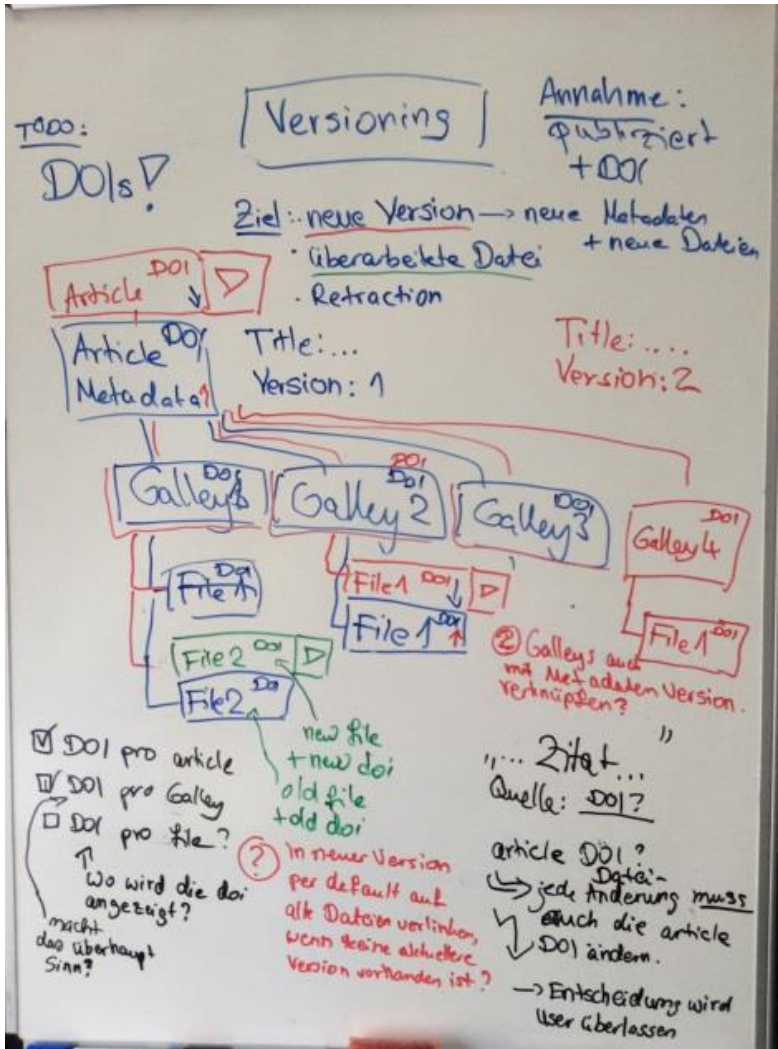 TODO:
DOIs!
Versioning
Annahme:
publiziert
+ DOI
Ziel: · neue Version → neue Metadaten
+ neue Dateien
· überarbeitete Datei
· Retraction
Article DOI
Article DOI
Metadata
Title: ...
Version: 1
Title: ....
Version: 2
Galley DOI
DOI
Galley 2 DOI
Galley 3 DOI
Galley 4 DOI
File 1 DOI
File 2 DOI
File 2 DOI
File 1 DOI
File 1 DOI
File 1 DOI
② Galleys auch
mit Metadaten Version
verknüpfen?
new file
+ new doi
old file
+ old doi
DOI pro article
DOI pro Galley
DOI pro file?
Wo wird die doi
angezeigt?
macht
das überhaupt
Sinn?
? In neuer Version
per default auf
alte Dateien verlinken,
wenn keine aktuellere
Version vorhanden ist?
„... Zitat ..."
Quelle: DOI?
article DOI?
Datei-
jede Änderung muss
auch die article
DOI ändern.
→ Entscheidung wird
User überlassen